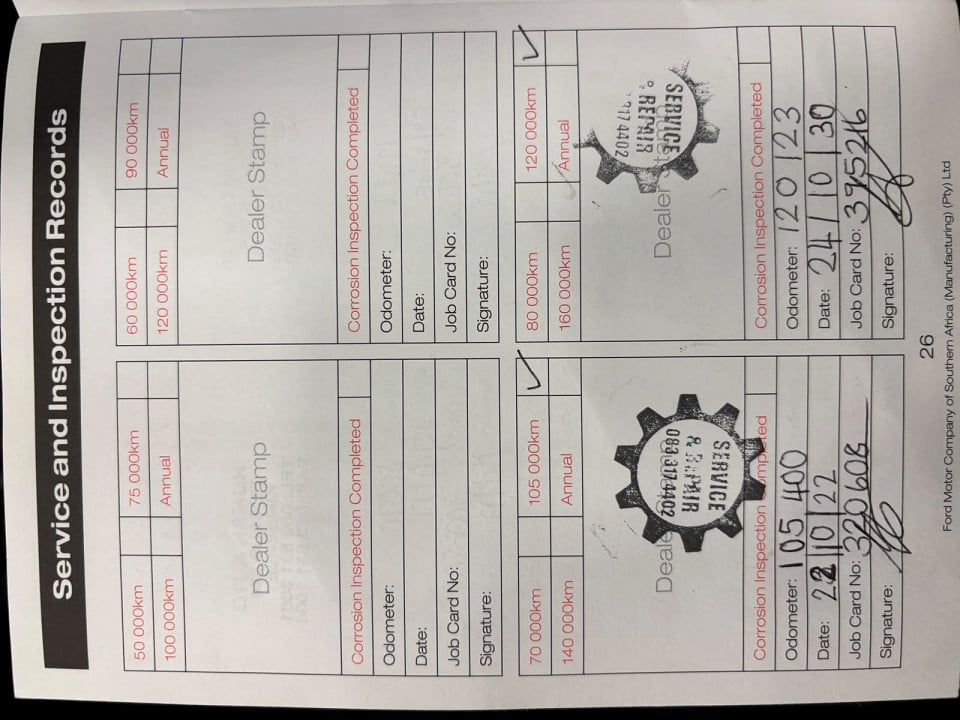 Service and Inspection Records
50 000km 75 000km
100 000km Annual
Dealer Stamp
Corrosion Inspection Completed
Odometer:
Date:
Job Card No:
Signature:
60 000km 90 000km
120 000km Annual
Dealer Stamp
Corrosion Inspection Completed
Odometer:
Date:
Job Card No:
Signature:
70 000km 105 000km ✓
140 000km Annual
SERVICE
& REPAIR
083 317 4402
Corrosion Inspection Completed
Odometer: 105 400
Date: 22/10/22
Job Card No: 320608
Signature:
80 000km 120 000km ✓
160 000km Annual
SERVICE
& REPAIR
317 4402
Dealer
Corrosion Inspection Completed
Odometer: 120 123
Date: 24/10/30
Job Card No: 395216
Signature:
26
Ford Motor Company of Southern Africa (Manufacturing) (Pty) Ltd